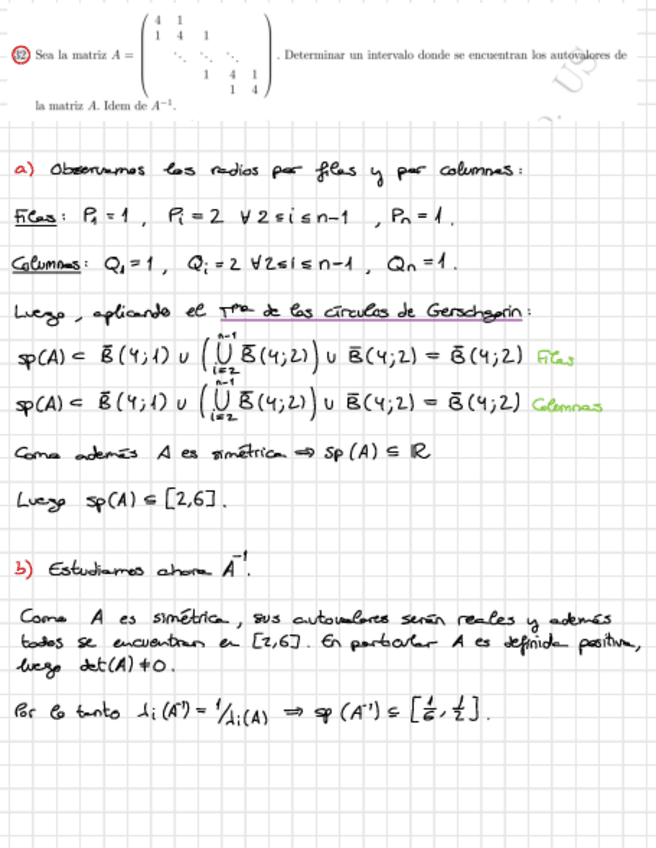 32 Sea la matriz A = ( 4 1
1 4 1
⋱ ⋱ ⋱
1 4 1
1 4 ) . Determinar un intervalo donde se encuentran los autovalores de
la matriz A. Idem de A⁻¹.
US
a) Observamos los radios por filas y por columnas:
Filas: P₁ = 1 , Pᵢ = 2 ∀ 2 ≤ i ≤ n-1 , Pₙ = 1.
Columnas: Q₁ = 1, Qᵢ = 2 ∀ 2 ≤ i ≤ n-1 , Qₙ = 1.
Luego, aplicando el Tma de los círculos de Gerschgorin:
sp(A) ⊂ B̄(4;1) ∪ (⋃ᵢ₌₂ⁿ⁻¹ B̄(4;2)) ∪ B̄(4;2) = B̄(4;2) Filas
sp(A) ⊂ B̄(4;1) ∪ (⋃ᵢ₌₂ⁿ⁻¹ B̄(4;2)) ∪ B̄(4;2) = B̄(4;2) Columnas
Como además A es simétrica ⇒ sp(A) ⊆ ℝ
Luego sp(A) ⊆ [2,6].
b) Estudiamos ahora A⁻¹.
Como A es simétrica, sus autovalores serán reales y además
todos se encuentran en [2,6]. En particular A es definida positiva,
luego det(A) ≠ 0.
Por lo tanto λᵢ(A⁻¹) = 1/λᵢ(A) ⇒ sp(A⁻¹) ⊆ [1/6, 1/2].